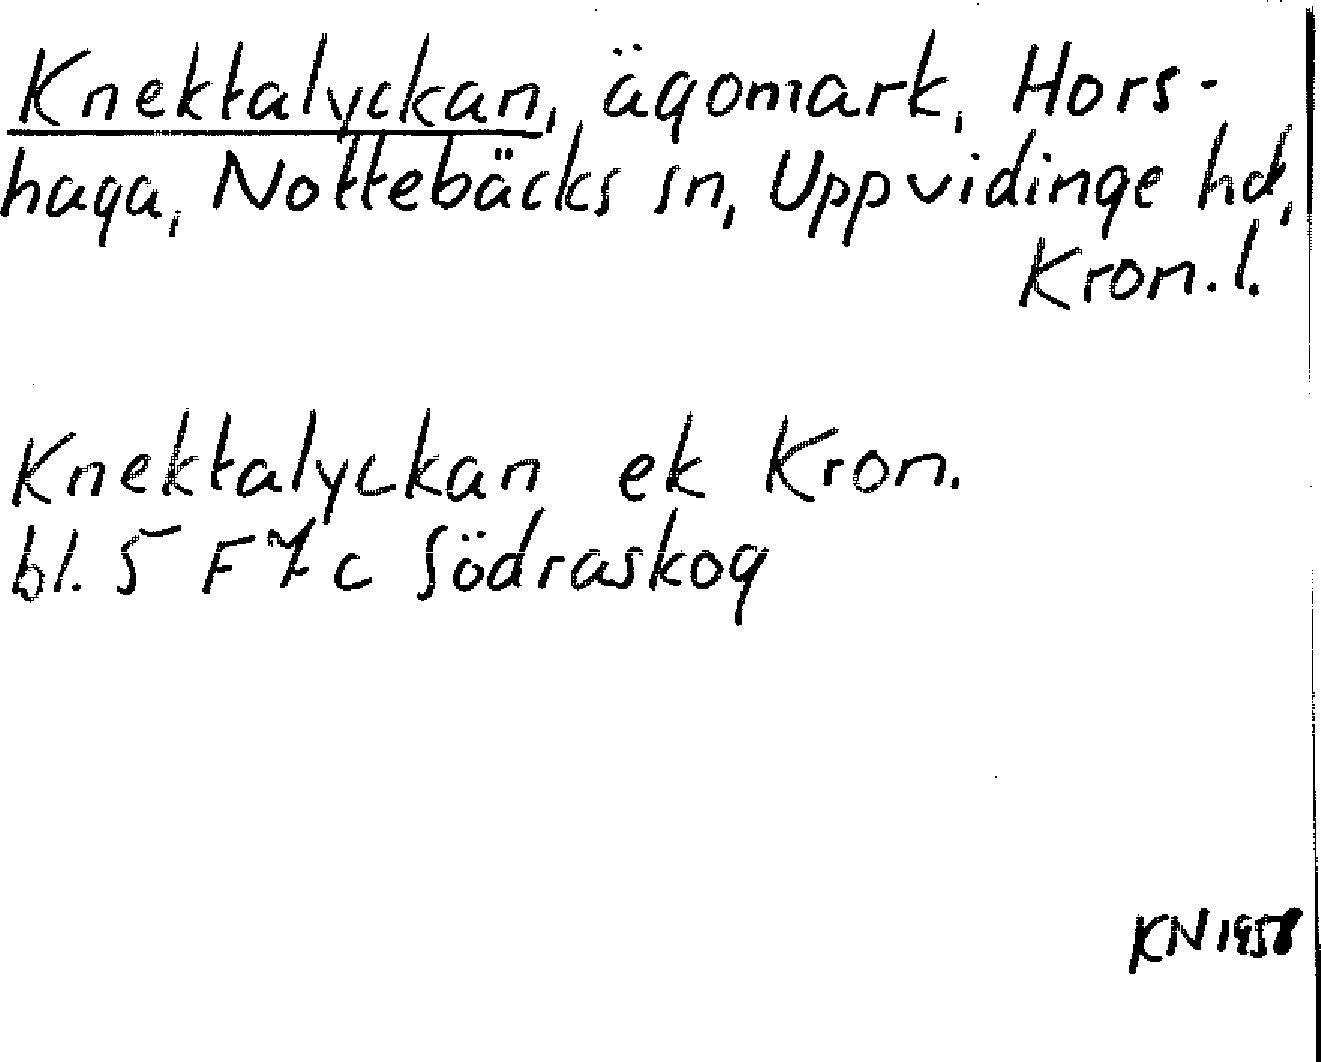 Knektalyckan, ägomark, Hors-
haga, Nottebäcks sn, Uppvidinge hd,
Kron.l.
Knektalyckan ek Kron.
bl. 5 F7c Södraskog
KN 1958